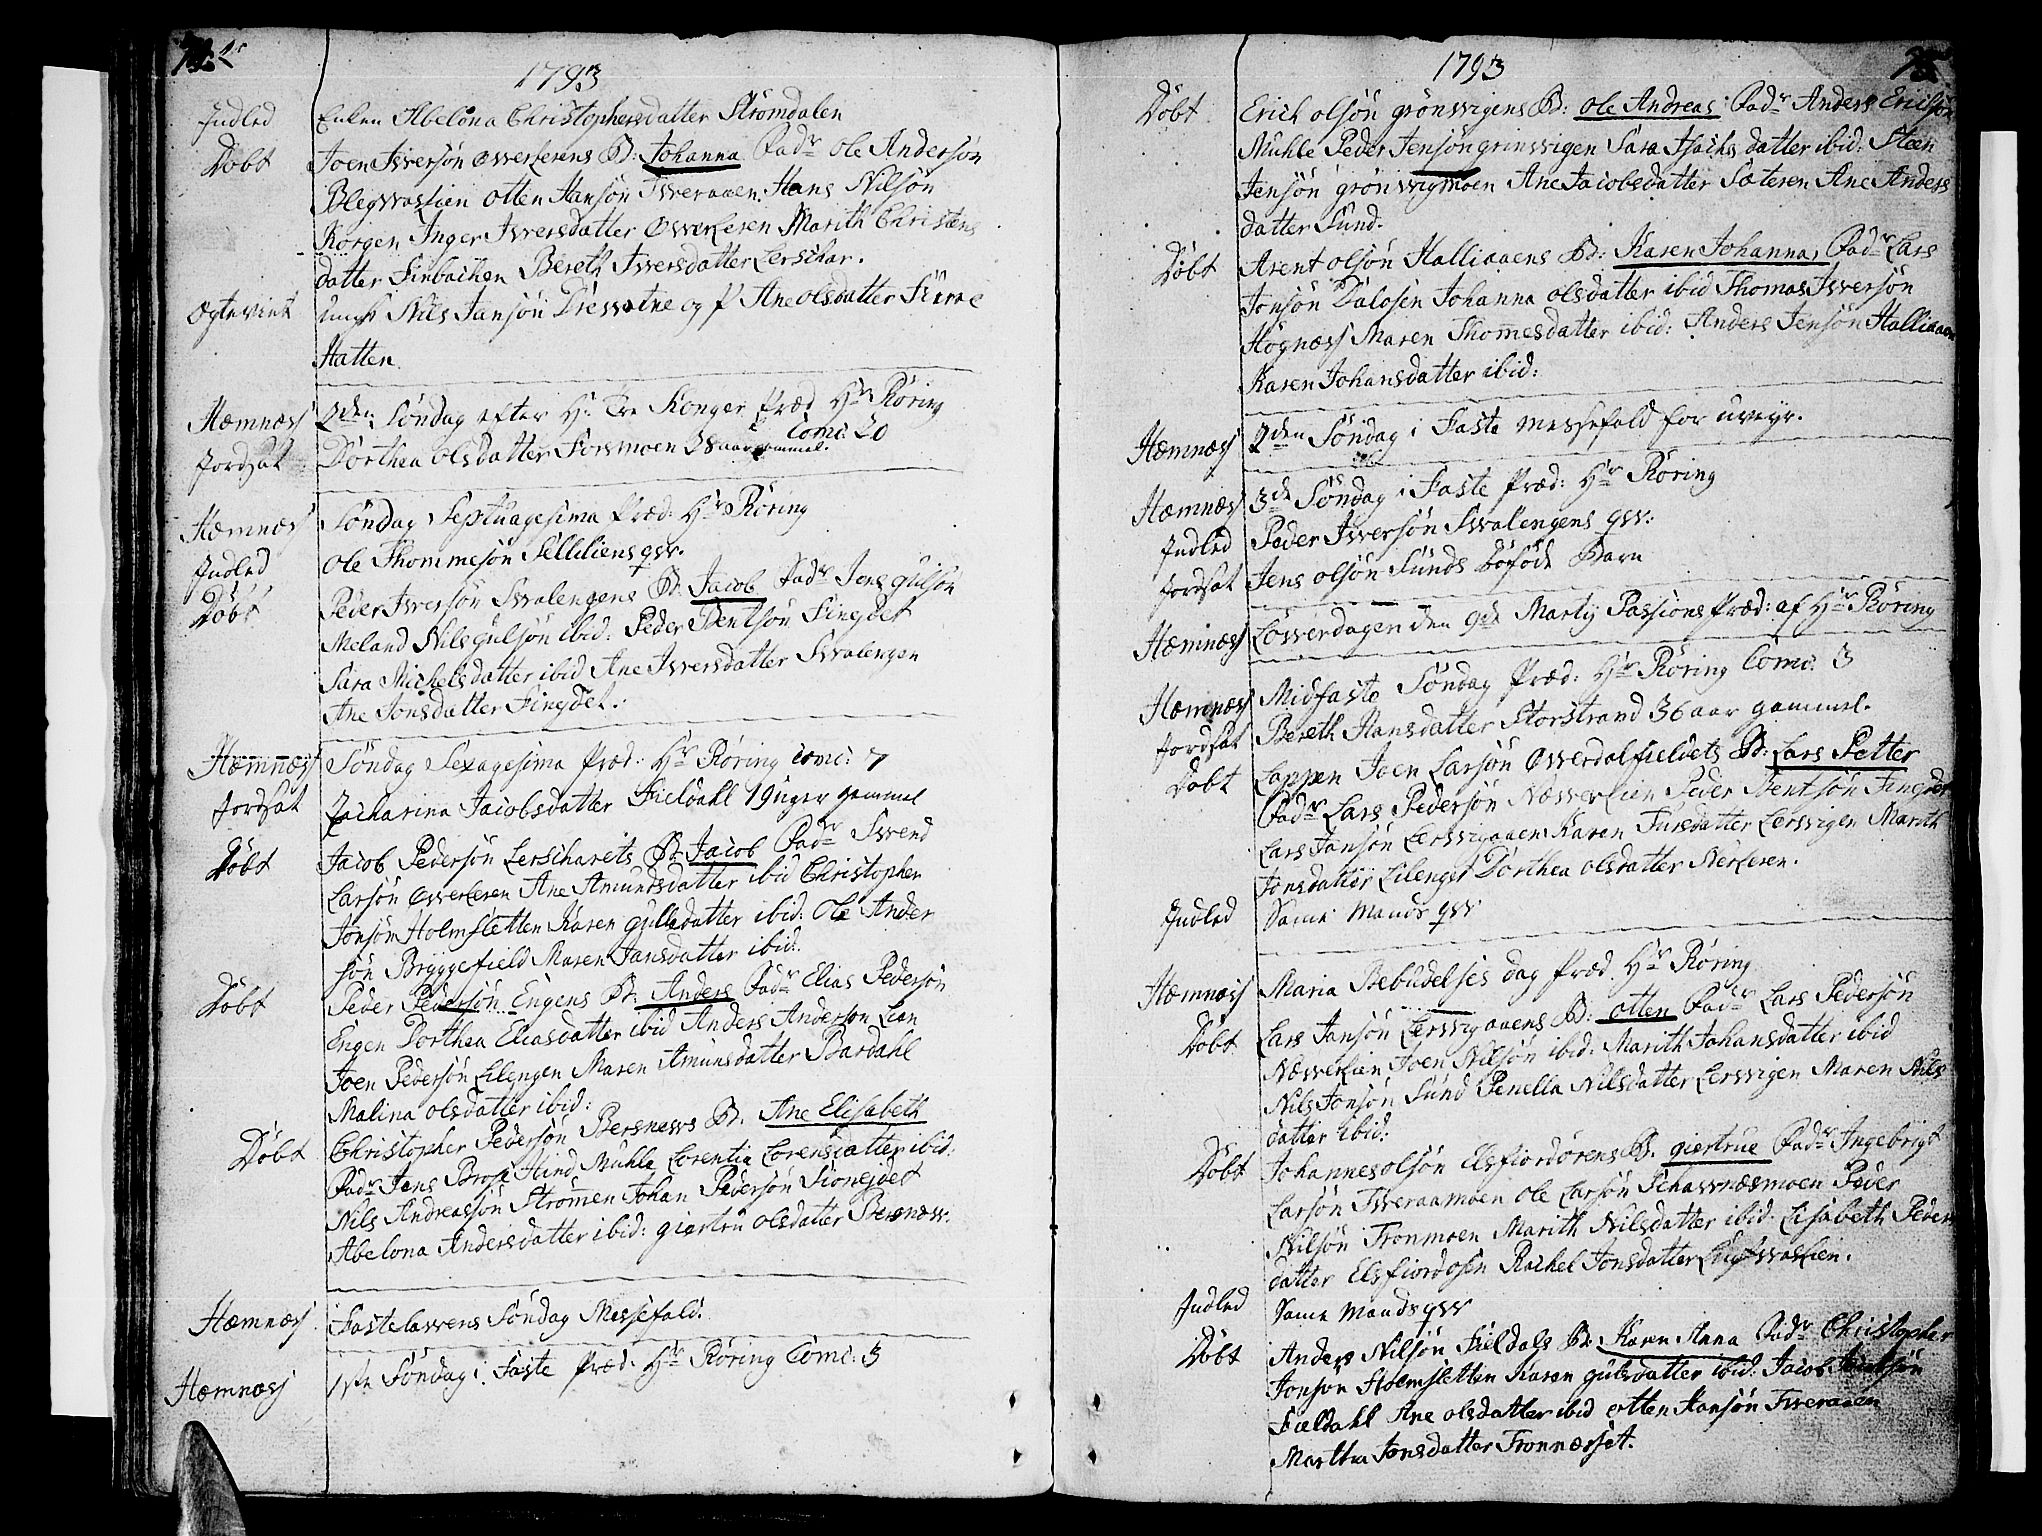 1793
Indled Enken Abelona Christophersdatter Strømdalen
Døbt Joen Iversøn Owerlerens B: Johanna Fadr Ole Andersøn
Blegvastien Otten Hansøn Tweraaen Hans Nilsøn
Korgen Inger Iversdatter Owerleren Marith Christens
datter Finbachen Bereth Iversdatter Lerschar.
Ægteviet ungk Nils Jansøn Dreswatne og P Ane Olsdatter
Hatten.
Hemnæs 2den Søndag efter H: Tre Konger Præd Hr Røring
Comc: 20
Jordsat Dorthea Olsdatter Forsmoen 38 aar gammel.
Hemnæs Søndag Septuagesima Præd: Hr Røring
Indled Ole Thommesøn Lilleliens qvv.
Døbt Peder Iwersøn Swalengens B: Jacob Fadr Jens Gulsøn
Meland Nils Gulsøn ibid: Peder Bentsøn Finejdet
Sara Michelsdatter ibid Ane Iwersdatter Swalengen
Ane Jonsdatter Finejdet.
Hæmnæs Søndag Sexagesima Præd: Hr Røring Comc: 7
Jordsat Zacharina Jacobsdatter Fieldahl 19 uger gammel
Døbt Jacob Pedersøn Lerscharets B: Jacob Fadr Swend
Larsøn Owerleren Ane Amundsdatter ibid Christopher
Jonsøn Holmsletten Karen Gulsdatter ibid: Ole Ander
søn Bryggefield Maren Jansdatter ibid:
Døbt Peder Pedersøn Engens B: Anders Fadr Elias Pedersøn
Engen Dorthea Eliasdatter ibid Anders Andersøn Lien
Joen Pedersøn Lilengen Maren Amunsdatter Bardahl
Malina Olsdatter ibid:
Døbt Christopher Pedersøn Bersnews B. Ane Elisabeth
Fadr Jens Brose Hind Muhle Lorentia Lorensdatter ibid:
Nils Andreasøn Strømmen Johan Pedersøn Sionejdet
Abelona Andersdatter ibid: Giertru Olsdatter Bersnew.
Hæmnæs Fastelawens Søndag Messefald.
Hæmnæs 1ste Søndag i Faste Præd: Hr Røring Comc: 3
1793
Døbt Erich Olsøn Grønwigens B: Ole Andreas Fadr Anders Erichsøn
Muhle Peder Jensøn Grinwigen Sara Isachsdatter ibid: Steen
Jensøn Grønwigmoen Ane Jacobsdatter Sæteren Ane Anders
datter Sund.
Døbt Arent Olsøn Halliaaens B: Karen Johanna, Fadr Lars
Jonsøn Dalosen Johanna Olsdatter ibid Thomas Iwersøn
Høgnæss Maren Thommesdatter ibid: Anders Jensøn Halliaaen
Karen Johansdatter ibid:
Hæmnæs 2den Søndag i Faste Messefald for uveyr.
Hæmnæs 3de Søndag i Faste Præd: Hr Røring
Indled Peder Iwersøn Swalengens qvv:
Jordsat Jens Olsøn Sunds døføde Barn
Hæmnæs Løwerdagen den 9de Martij Passions Præd: af Hr Røring
Hæmnæs Midfaste Søndag Præd: Hr Røring Comc: 3
Jordsat Bereth Hansdatter Storstrand 36 aar gammel.
Døbt Lappen Joen Larsøn Owerdalfieldets B: Lars Petter
Fadr Lars Pedersøn Næwerlien Peder Bentsøn Finejdet
Lars Jansøn Lerwigaaen Karen Tursdatter Lerwigen Marith
Jonsdatter Lilenget Dorthea Olsdatter Nerleren.
Indled Samme Mands qvv
Hæmnæs Maria Bebudelses dag Præd. Hr Røring
Døbt Lars Jansøn Lerwigaaens B: Otten Fadr Lars Pedersøn
Næwerlien Joen Nilsøn ibid: Marith Johansdatter ibid
Nils Jonsøn Sund Penella Nilsdatter Lerwigen Maren Nils
datter ibid:
Døbt Johannes Olsøn Elsfiordørens B. Giertrue Fadr Ingebrigt
Larsøn Tweraamoen Ole Larsøn Schawnæsmoen Peder
Nilsøn Tronmoen Marith Nilsdatter ibid: Lisabeth Peders
datter Elsfiordosen Rachel Jonsdatter
Indled Samme Mands qvv
Døbt Anders Nilsøn Fieldals B: Karen Anna Fadr Christopher
Jonsøn Holmsletten Karen Gulsdatter ibid: Jacob Jacobsøn
Fieldahl Ane Olsdatter ibid Otten Hansøn Tweraaen
Martha Jonsdatter Tronnæsset.